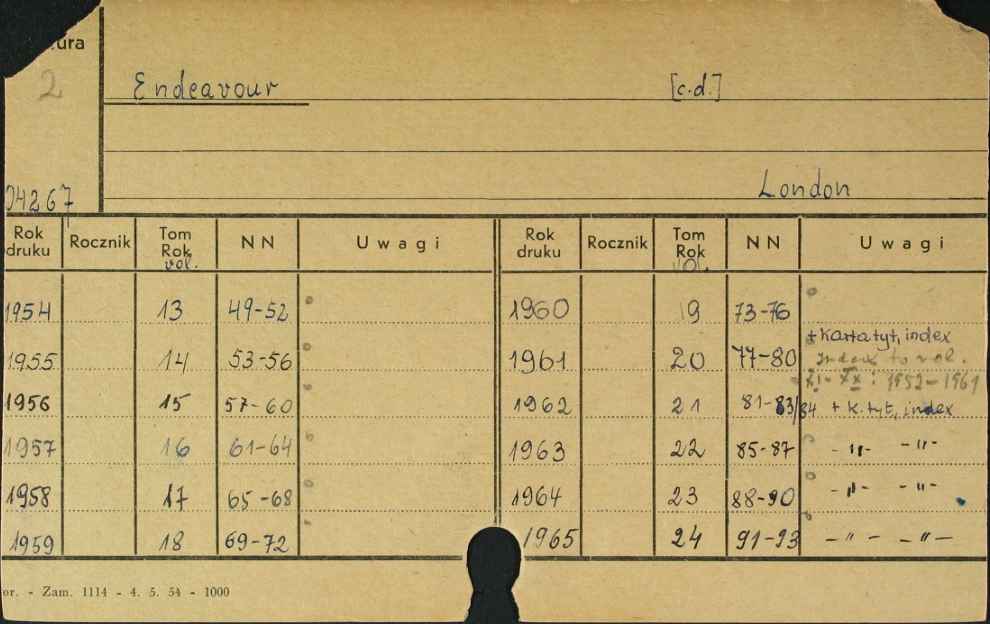 ura
2
Endeavour [c.d.]
London
04267
Rok druku Rocznik Tom Rok vol. NN Uwagi Rok druku Rocznik Tom Rok vol. NN Uwagi
1954 13 49-52 1960 19 73-76
+ karta tyt, index
1955 14 53-56 1961 20 77-80 Index to vol.
XI - XX : 1952-1961
1956 15 57-60 1962 21 81-83/84 + k. tyt, index
1957 16 61-64 1963 22 85-87 - " - - " -
1958 17 65-68 1964 23 88-90 - " - - " -
1959 18 69-72 1965 24 91-93 - " - - " -
or. - Zam. 1114 - 4. 5. 54 - 1000